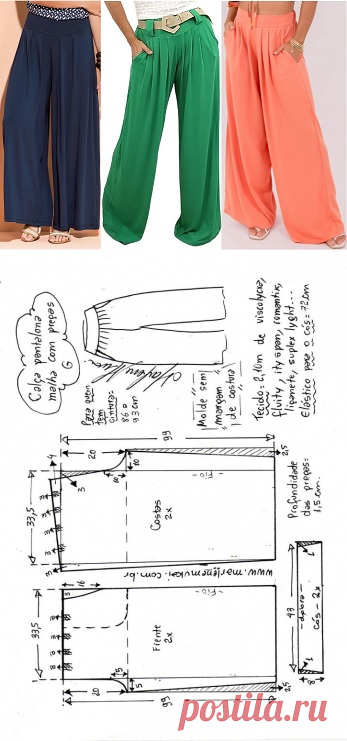 Calça pantalona
malha com pregas
G
Para quem
tem
cintura:
88 a
93 cm
Molde sem
margem
de costura
Tecido: 2,10m de viscolycra,
fluity, ity span, romantix,
liganete, suplex lyght...
Elástico para o cós = 72cm
Profundidade
das pregas:
1,5 cm.
99
20
4
3
8
10
2,5
33,5
Costas
2x
- Fio -
www.marlenemukai.com.br
33,5
16
- Fio -
Frente
2x
5
5
20
99
2,5
43
1
- dobra -
cós - 2x
1
8
postila.ru